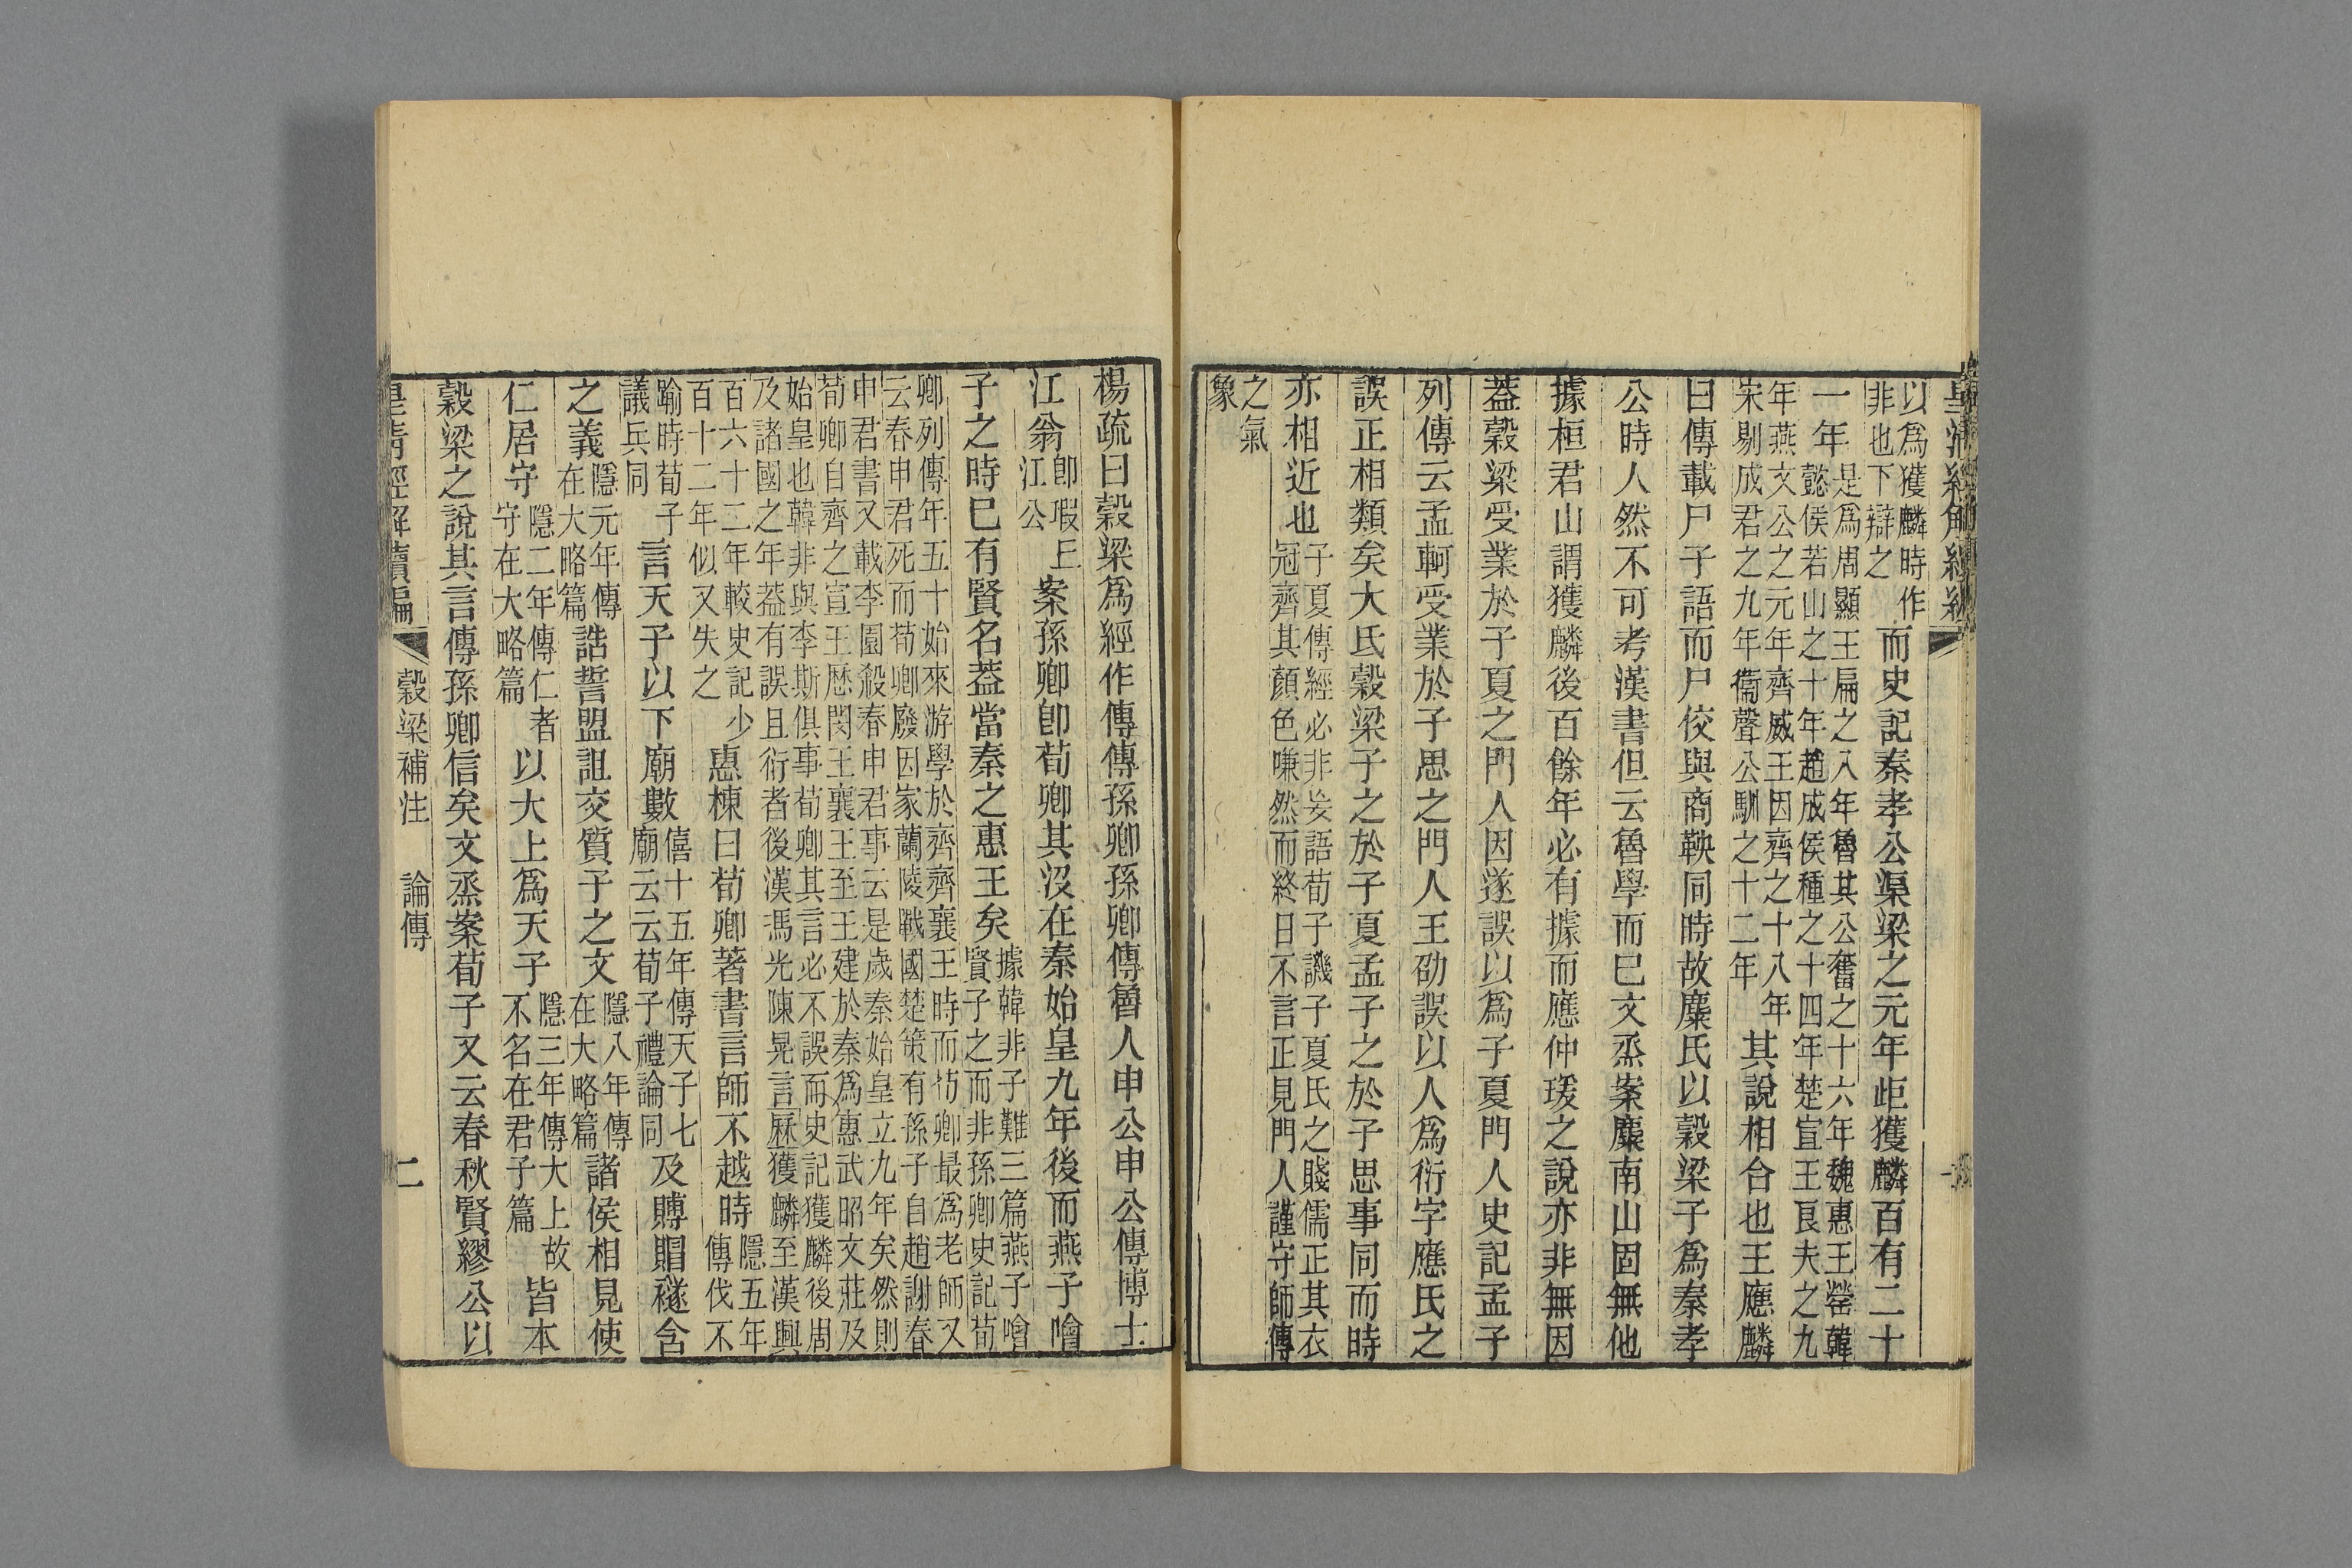 皇清經解續編
以爲獲麟時作
非也下辯之
而史記秦孝公渠梁之元年歫獲麟百有二十
一年
是爲周顯王扁之八年魯其公奮之十六年魏惠王罃韓
懿侯若山之十年趙成侯種之十四年楚宣王良夫之九
年燕文公之元年齊威王因齊之十八年
宋剔成君之九年衞聲公馴之十二年
其說相合也王應麟
曰傳載尸子語而尸佼與商鞅同時故麋氏以穀梁子爲秦孝
公時人然不可考漢書但云魯學而已文烝案麋南山固無他
據桓君山謂獲麟後百餘年必有據而應仲瑗之說亦非無因
葢穀梁受業於子夏之門人因遂誤以爲子夏門人史記孟子
列傳云孟軻受業於子思之門人王劭誤以人爲衍字應氏之
誤正相類矣大氏穀梁子之於子夏孟子之於子思事同而時
亦相近也
子夏傳經必非妄語荀子譏子夏氏之賤儒正其衣
冠齊其顏色嗛然而終日不言正見門人謹守師傳
之氣
象
楊疏曰穀梁爲經作傳傳孫卿孫卿傳魯人申公申公傳博士
江翁
卽瑕丘
江公
案孫卿卽荀卿其沒在秦始皇九年後而燕子噲
子之時已有賢名葢當秦之惠王矣
據韓非子難三篇燕子噲
賢子之而非孫卿史記荀
卿列傳年五十始來游學於齊齊襄王時而荀卿最爲老師又
云春申君死而荀卿廢因家蘭陵戰國楚策有孫子自趙謝春
申君書又載李園殺春申君事云是歲秦始皇立九年矣然則
荀卿自齊之宣王歷閔王襄王至王建於秦爲惠武昭文莊及
始皇也韓非與李斯俱事荀卿其言必不誤而史記獲麟後周
及諸國之年葢有誤且衍者後漢馮光陳晃言厤獲麟至漢興
百六十二年較史記少
百十二年似又失之
惠棟曰荀卿著書言師不越時
隱五年
傳伐不
踰時荀子
議兵同
言天子以下廟數
僖十五年傳天子七
廟云云荀子禮論同
及賻賵襚含
之義
隱元年傳
在大略篇
誥誓盟詛交質子之文
隱八年傳
在大略篇
諸侯相見使
仁居守
隱二年傳仁者
守在大略篇
以大上爲天子
隱三年傳大上故
不名在君子篇
皆本
穀梁之說其言傳孫卿信矣文烝案荀子又云春秋賢繆公以
皇清經解續編
穀梁補注
論傳
二